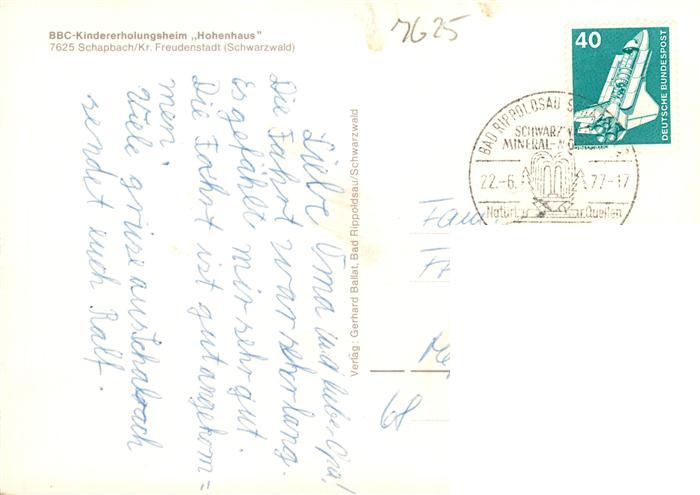 BBC-Kindererholungsheim „Hohenhaus"
7625 Schapbach/Kr. Freudenstadt (Schwarzwald)
7625
40
DEUTSCHE BUNDESPOST
BAD RIPPOLDSAU S
SCHWARZW
MINERAL-MO
22.-6. 77-17
Natürl Quellen
Liebe Oma und lieber Opa!
Die Fahrt war sehr lang.
Es gefählt mir sehr gut.
Die Fahrt ist gut angekom=
men.
Viele grüse aus Schabach
sendet euch Ralf.
Verlag: Gerhard Ballat, Bad Rippoldsau/Schwarzwald
Fam
68